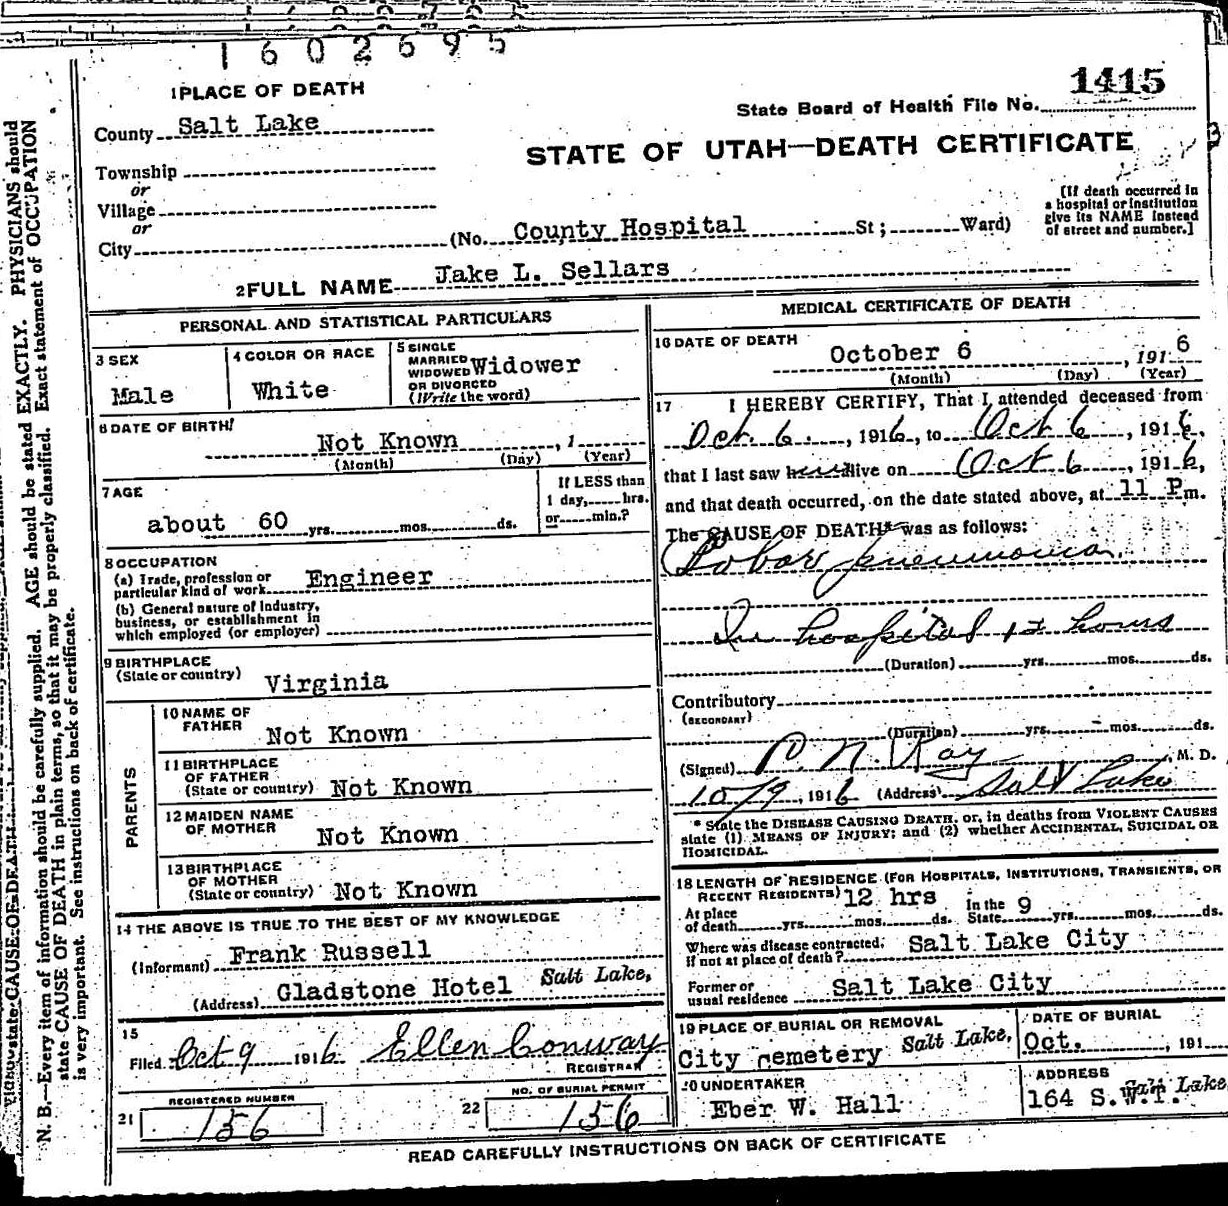 1602695
1 PLACE OF DEATH
1415
State Board of Health File No.
County Salt Lake
STATE OF UTAH—DEATH CERTIFICATE
Township
or
Village
or
City
(No. County Hospital St; Ward)
(If death occurred in
a hospital or institution
give its NAME instead
of street and number.]
2 FULL NAME Jake L. Sellars
PERSONAL AND STATISTICAL PARTICULARS
3 SEX
Male
4 COLOR OR RACE
White
5 SINGLE
MARRIED
WIDOWED
OR DIVORCED
(Write the word)
Widower
6 DATE OF BIRTH
Not Known , 1
(Month) (Day) (Year)
7 AGE
about 60 yrs. mos. ds.
If LESS than
1 day, hrs.
or min.?
8 OCCUPATION
(a) Trade, profession or
particular kind of work Engineer
(b) General nature of industry,
business, or establishment in
which employed (or employer)
9 BIRTHPLACE
(State or country) Virginia
PARENTS
10 NAME OF
FATHER Not Known
11 BIRTHPLACE
OF FATHER
(State or country) Not Known
12 MAIDEN NAME
OF MOTHER Not Known
13 BIRTHPLACE
OF MOTHER
(State or country) Not Known
14 THE ABOVE IS TRUE TO THE BEST OF MY KNOWLEDGE
(Informant) Frank Russell
(Address) Gladstone Hotel Salt Lake,
15
Filed Oct 9 1916 Ellen Conway
REGISTRAR
REGISTERED NUMBER
21 156
NO. OF BURIAL PERMIT
22 156
MEDICAL CERTIFICATE OF DEATH
16 DATE OF DEATH
October 6 , 1916
(Month) (Day) (Year)
17 I HEREBY CERTIFY, That I attended deceased from
Oct. 6. , 1916, to Oct 6 , 1916,
that I last saw him alive on Oct 6 , 1916,
and that death occurred, on the date stated above, at 11 P m.
The CAUSE OF DEATH* was as follows:
Lobar pneumonia.
In hospital 12 hours
(Duration) yrs. mos. ds.
Contributory
(SECONDARY)
(Duration) yrs. mos. ds.
(Signed) P. N. Ray , M. D.
10/9 , 1916 (Address) Salt Lake
* State the DISEASE CAUSING DEATH, or, in deaths from VIOLENT CAUSES
state (1) MEANS OF INJURY; and (2) whether ACCIDENTAL, SUICIDAL OR
HOMICIDAL.
18 LENGTH OF RESIDENCE (FOR HOSPITALS, INSTITUTIONS, TRANSIENTS, OR
RECENT RESIDENTS) 12 hrs
At place
of death yrs. mos. ds. In the
State 9 yrs. mos. ds.
Where was disease contracted,
if not at place of death? Salt Lake City
Former or
usual residence Salt Lake City
19 PLACE OF BURIAL OR REMOVAL
City cemetery Salt Lake.
DATE OF BURIAL
Oct. , 191
20 UNDERTAKER
Eber W. Hall
ADDRESS
164 S.W.T. Salt Lake
READ CAREFULLY INSTRUCTIONS ON BACK OF CERTIFICATE
N. B.—Every item of information should be carefully supplied. AGE should be stated EXACTLY. PHYSICIANS should
state CAUSE OF DEATH in plain terms, so that it may be properly classified. Exact statement of OCCUPATION
is very important. See instructions on back of certificate.